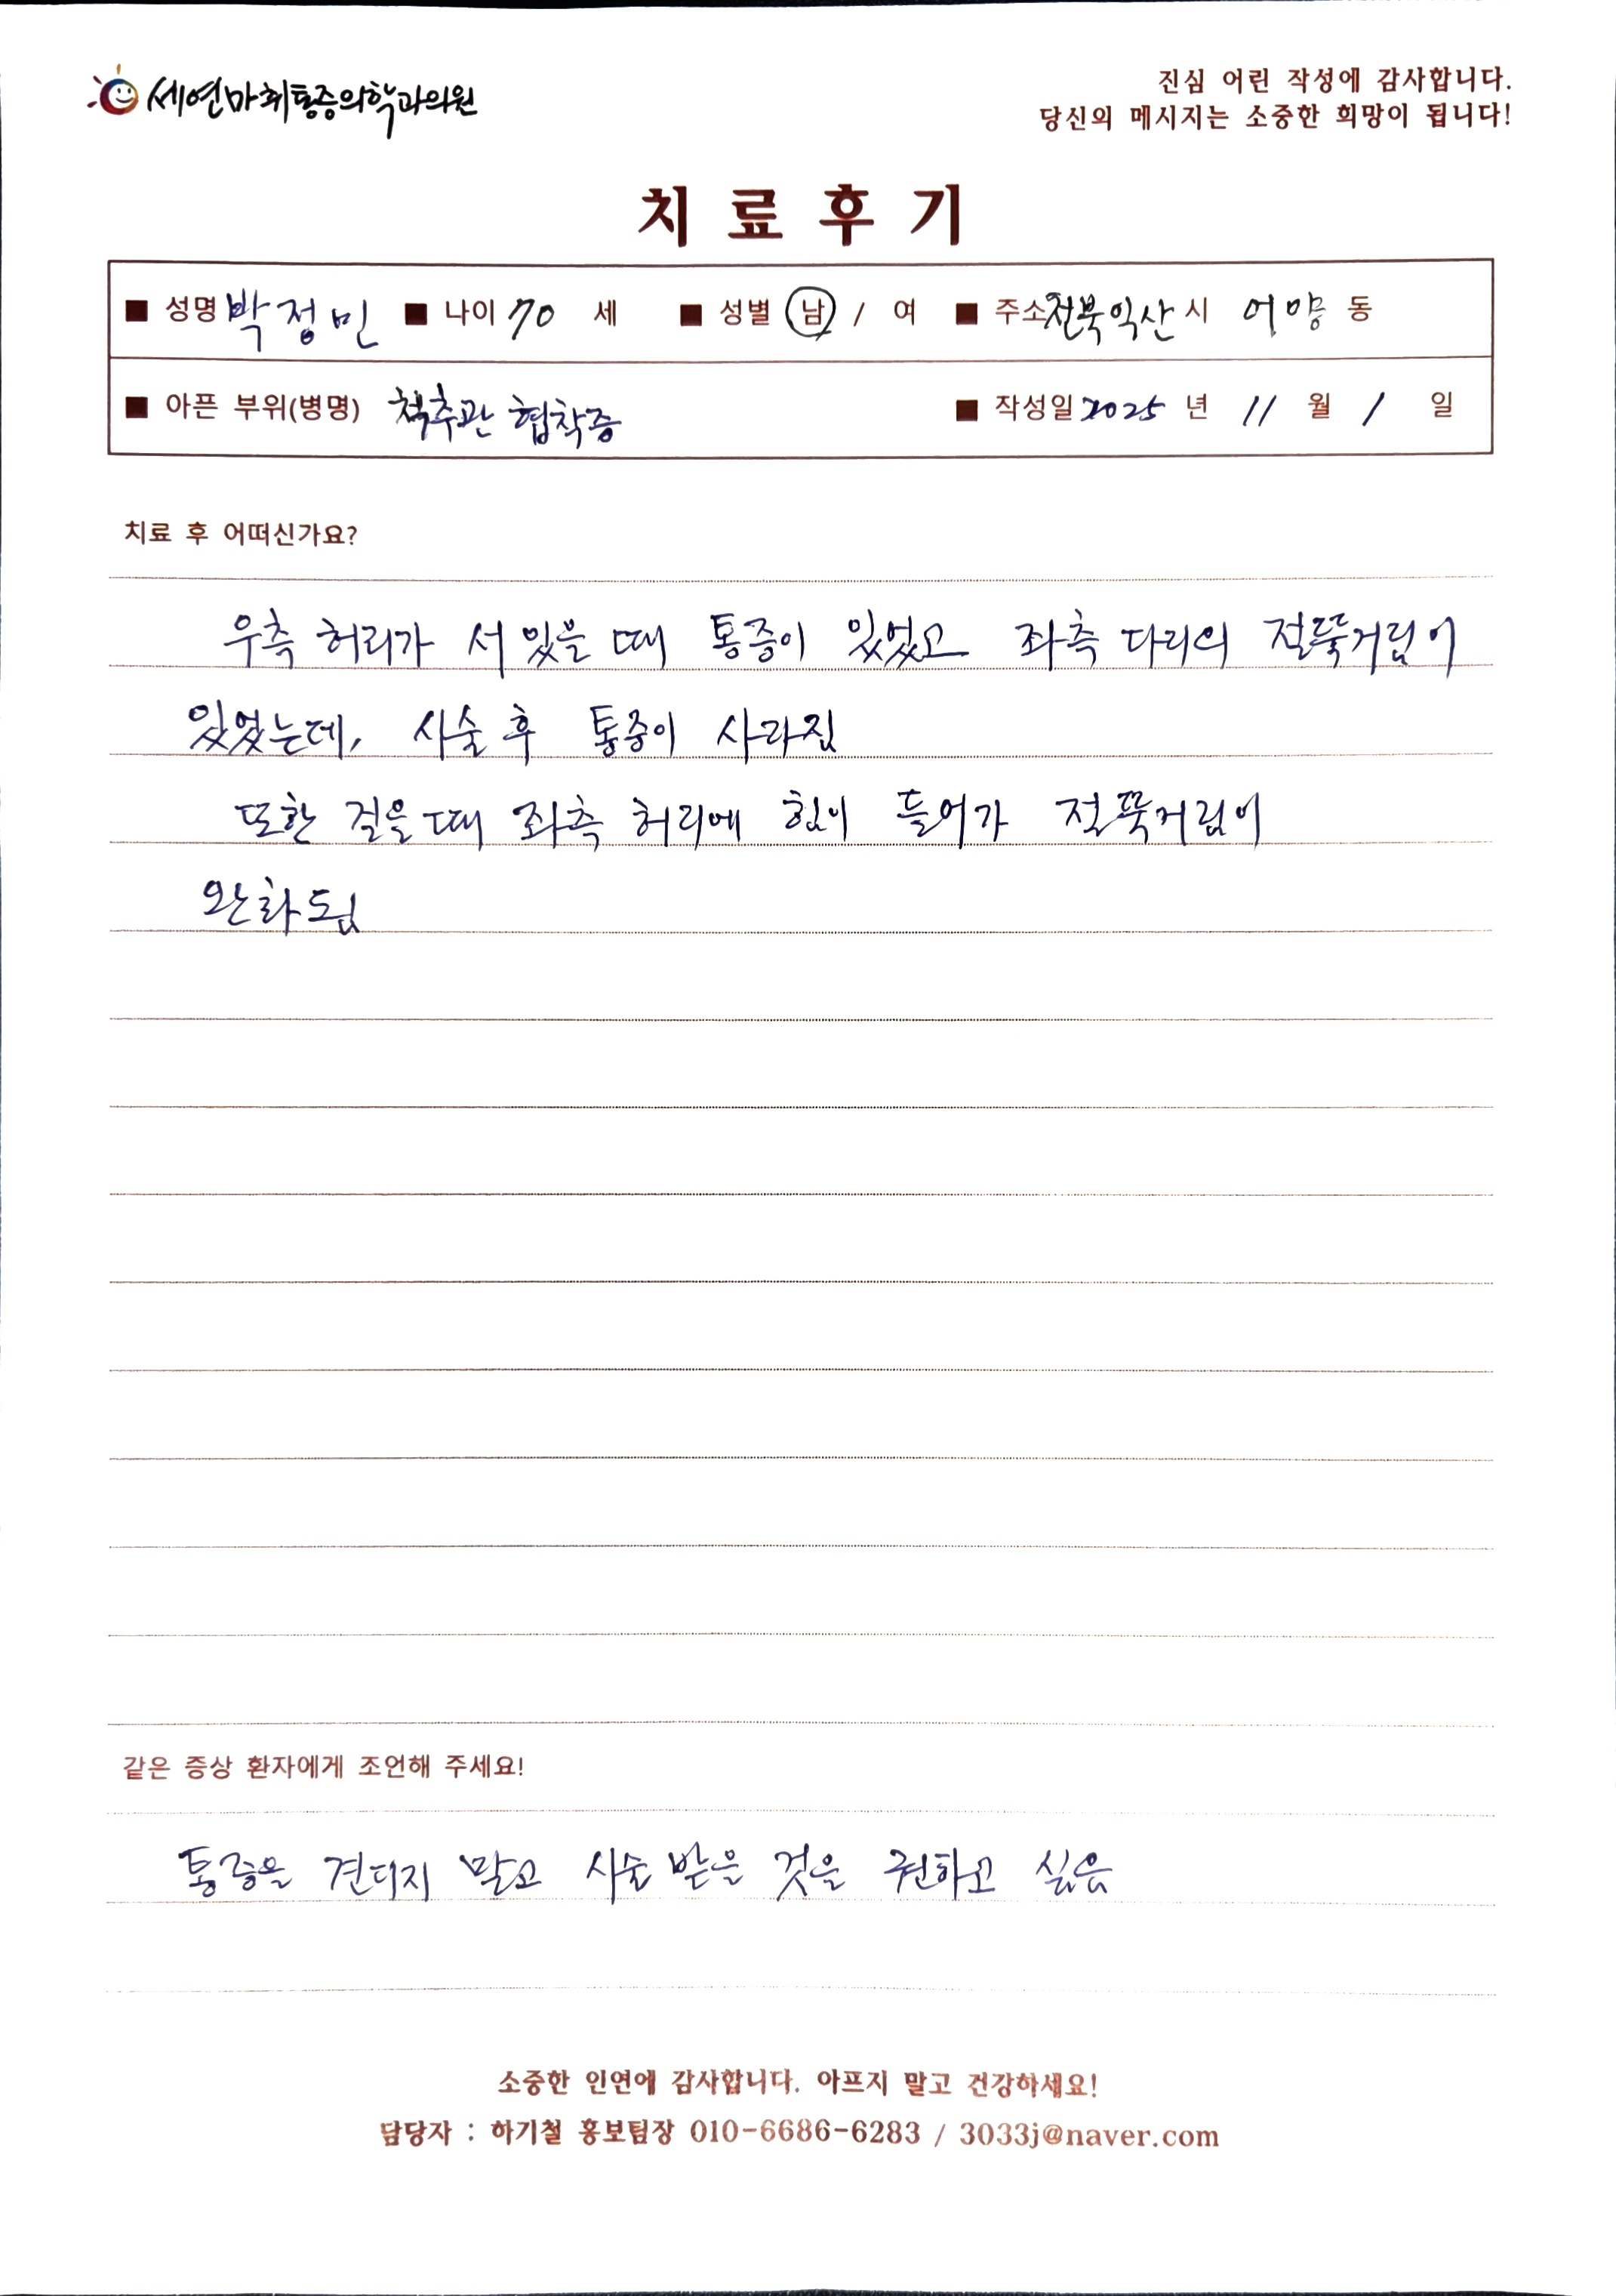 세연마취통증의학과의원
진심 어린 작성에 감사합니다.
당신의 메시지는 소중한 희망이 됩니다!
치료후기
■ 성명 박정민 ■ 나이 70 세 ■ 성별 남 / 여 ■ 주소 전북익산 시 어양 동
■ 아픈 부위(병명) 척추관 협착증 ■ 작성일 2025 년 11 월 1 일
치료 후 어떠신가요?
우측 허리가 서 있을 때 통증이 있었고 좌측 다리의 절뚝거림이
있었는데, 시술 후 통증이 사라짐
또한 걸을 때 좌측 허리에 힘이 들어가 절뚝거림이
완화됨
같은 증상 환자에게 조언해 주세요!
통증을 견디지 말고 시술 받을 것을 권하고 싶음
소중한 인연에 감사합니다. 아프지 말고 건강하세요!
담당자 : 하기철 홍보팀장 010-6686-6283 / 3033j@naver.com